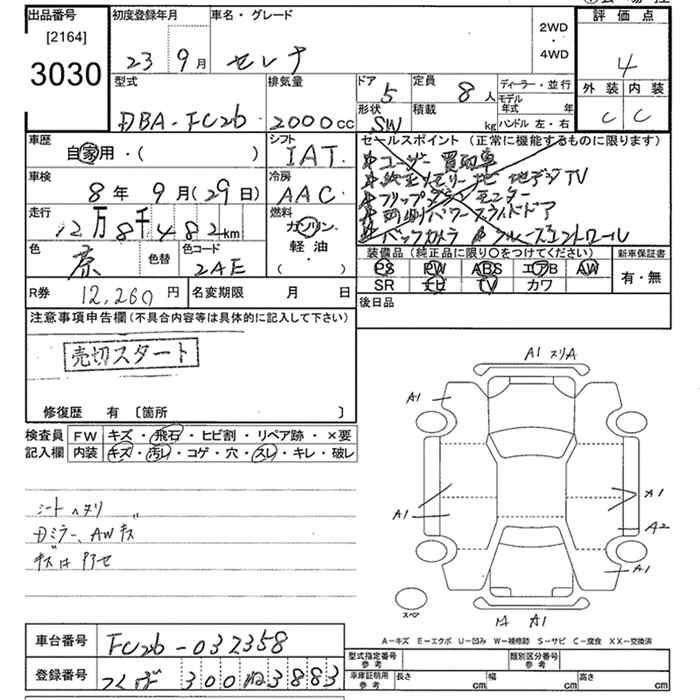 出品番号
[2164]
3030
初度登録年月
23 9月
車名・グレード
セレナ
2WD
・
4WD
評価点
4
外装 内装
C C
型式
DBA-FC26
排気量
2000cc
ドア
5
定員
8人
ディーラー・並行
モデル年式 年
形状
SW
積載
kg
ハンドル 左・右
車歴
自家用・( )
シフト
IAT
セールスポイント (正常に機能するものに限ります)
ユーザー買取車
純正メモリーナビ 地デジTV
フリップダウンモニター
両側パワースライドドア
バックカメラ クルーズコントロール
車検
8年 9月(29日)
冷房
AAC
走行
12万8千482km
燃料
ガソリン
軽油・
( )
色
茶
色替
色コード
2AE
装備品 (純正品に限り○をつけてください)
新車保証書
PS PW ABS エアB AW
SR ナビ TV カワ
有・無
R券 12,260円
名変期限 月 日
後日品
注意事項申告欄 (不具合内容等は具体的に記入して下さい)
売切スタート
修復歴 有 〔箇所 〕
検査員記入欄
FW キズ・飛石・ヒビ割・リペア跡・×要
内装 キズ・汚レ・コゲ・穴・スレ・キレ・破レ
シートヘタリ
Dミラー、AWキズ
A1 スリA
A1
A1
A1
A2
A1
A1
スペア
A-キズ E-エクボ U-凹み W-補修跡 S-サビ C-腐食 XX-交換済
車台番号 FC26-032358
登録番号 つくば 300 ぬ 3883
型式指定番号 参考
類別区分番号 参考
車庫証明用 参考
長さ cm
幅 cm
高さ cm